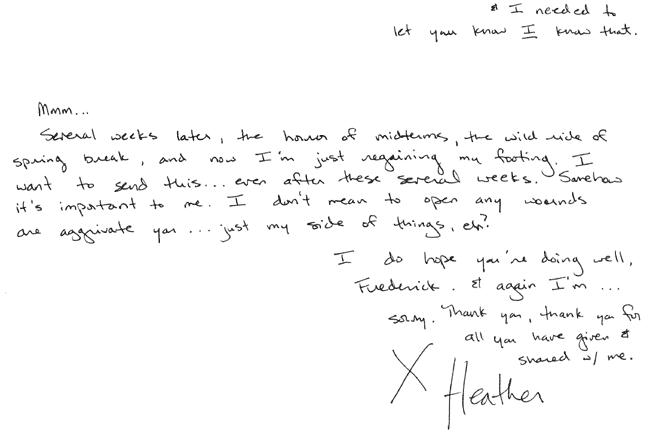 & I needed to
let you know I know that.
Mmm...
Several weeks later, the horror of midterms, the wild ride of
spring break, and now I'm just regaining my footing. I
want to send this... even after these several weeks. Somehow
it's important to me. I don't mean to open any wounds
are aggrivate you ... just my side of things, eh?
I do hope you're doing well,
Frederick. & again I'm ...
sorry. Thank you, thank you for
all you have given &
shared w/ me.
X Heather